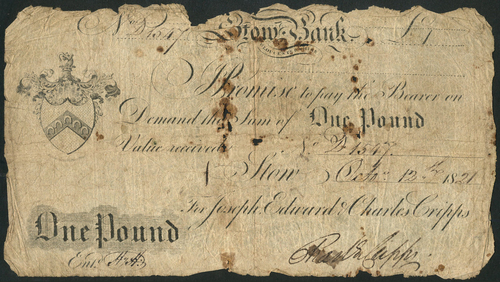 No. D1547 Stow Bank £1
I Promise to pay the Bearer on
Demand the Sum of One Pound
Value received No. D1547
Stow 12th 1821
For Joseph Edward & Charles Cripps
One Pound
Entd.